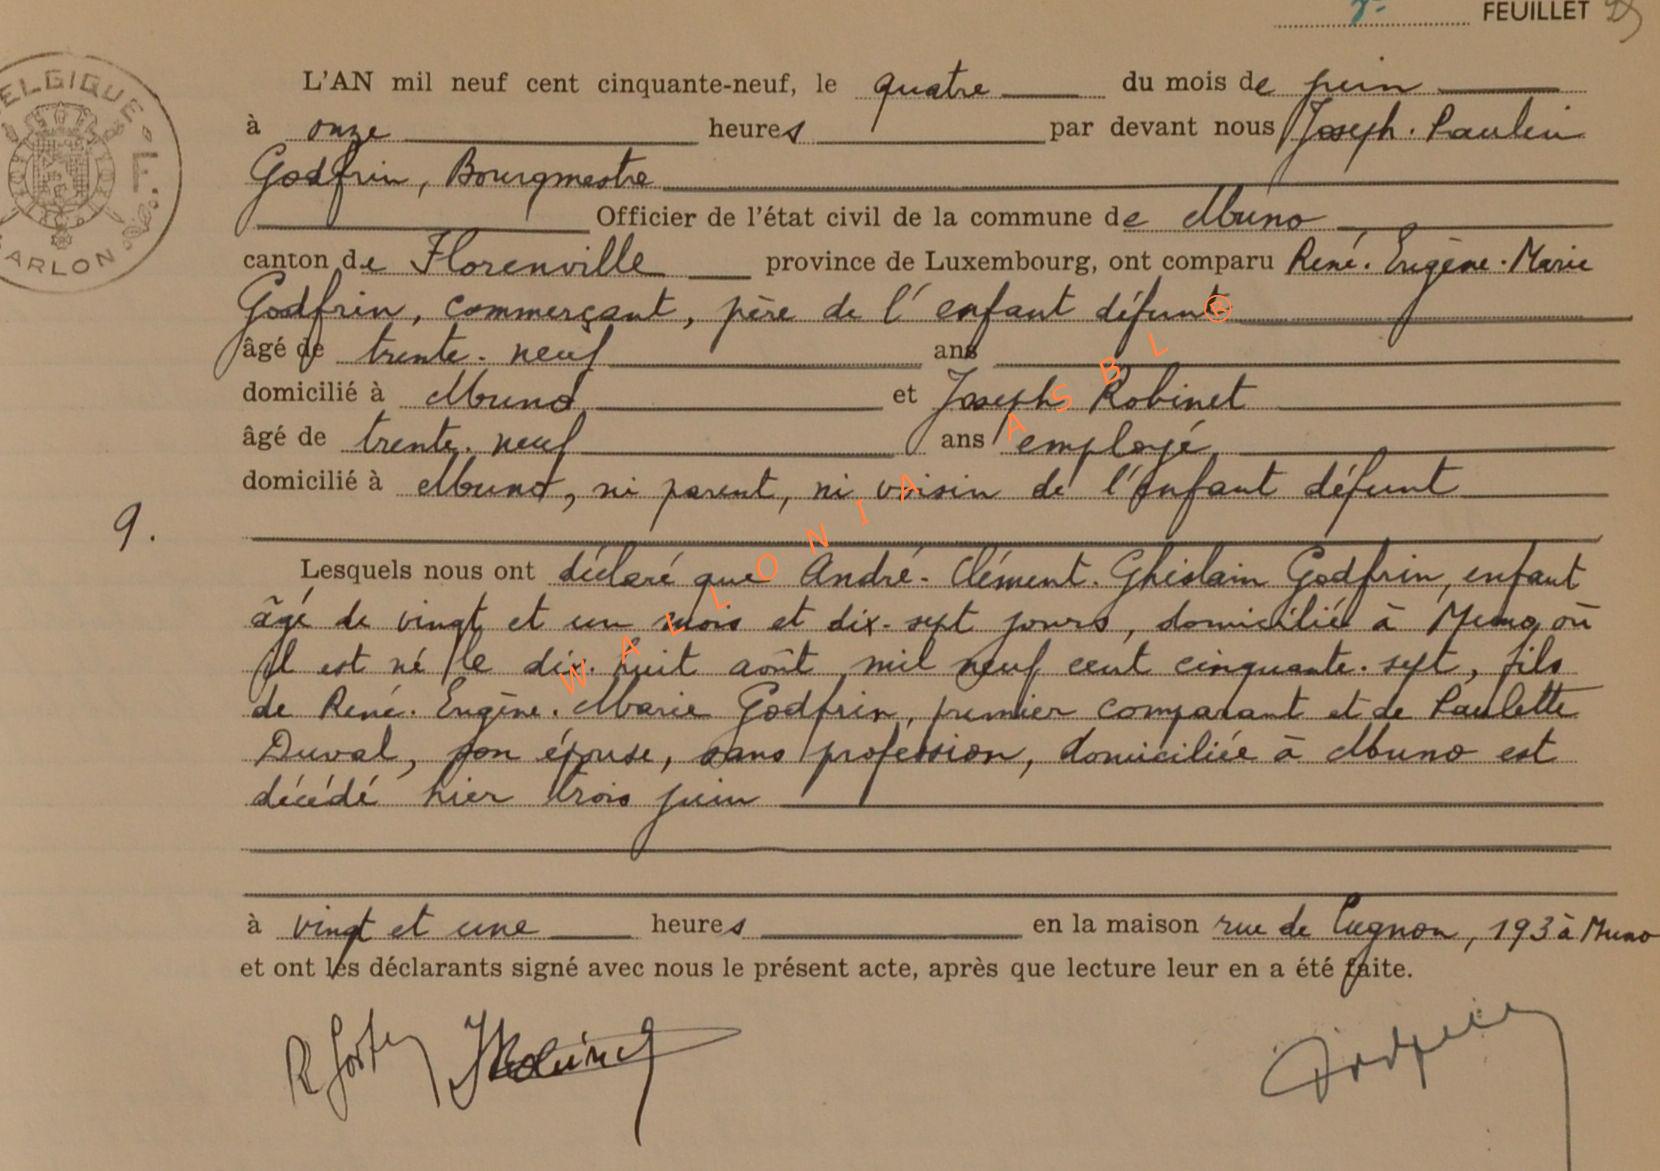 FEUILLET
BELGIQUE
ARLON
L'AN mil neuf cent cinquante-neuf, le quatre du mois de juin
à onze heures par devant nous Joseph. Paulin
Godfrin, Bourgmestre
Officier de l'état civil de la commune de Muno
canton de Florenville province de Luxembourg, ont comparu René. Eugène. Marie
Godfrin, commerçant, père de l'enfant défunt
âgé de trente. neuf ans
domicilié à Muno et Joseph Robinet
âgé de trente. neuf ans employé
domicilié à Muno, ni parent, ni voisin de l'enfant défunt
9.
Lesquels nous ont déclaré que André. Clément. Ghislain Godfrin, enfant
âgé de vingt et un mois et dix. sept jours, domicilié à Muno, où
il est né le dix. huit août mil neuf cent cinquante. sept, fils
de René. Eugène. Marie Godfrin, premier comparant et de Paulette
Duval, son épouse, sans profession, domiciliée à Muno est
décédé hier trois juin
à vingt et une heures en la maison rue de Cugnon, 193 à Muno
et ont les déclarants signé avec nous le présent acte, après que lecture leur en a été faite.
JRobinet
Godfrin
WALLONIA ASBL ®